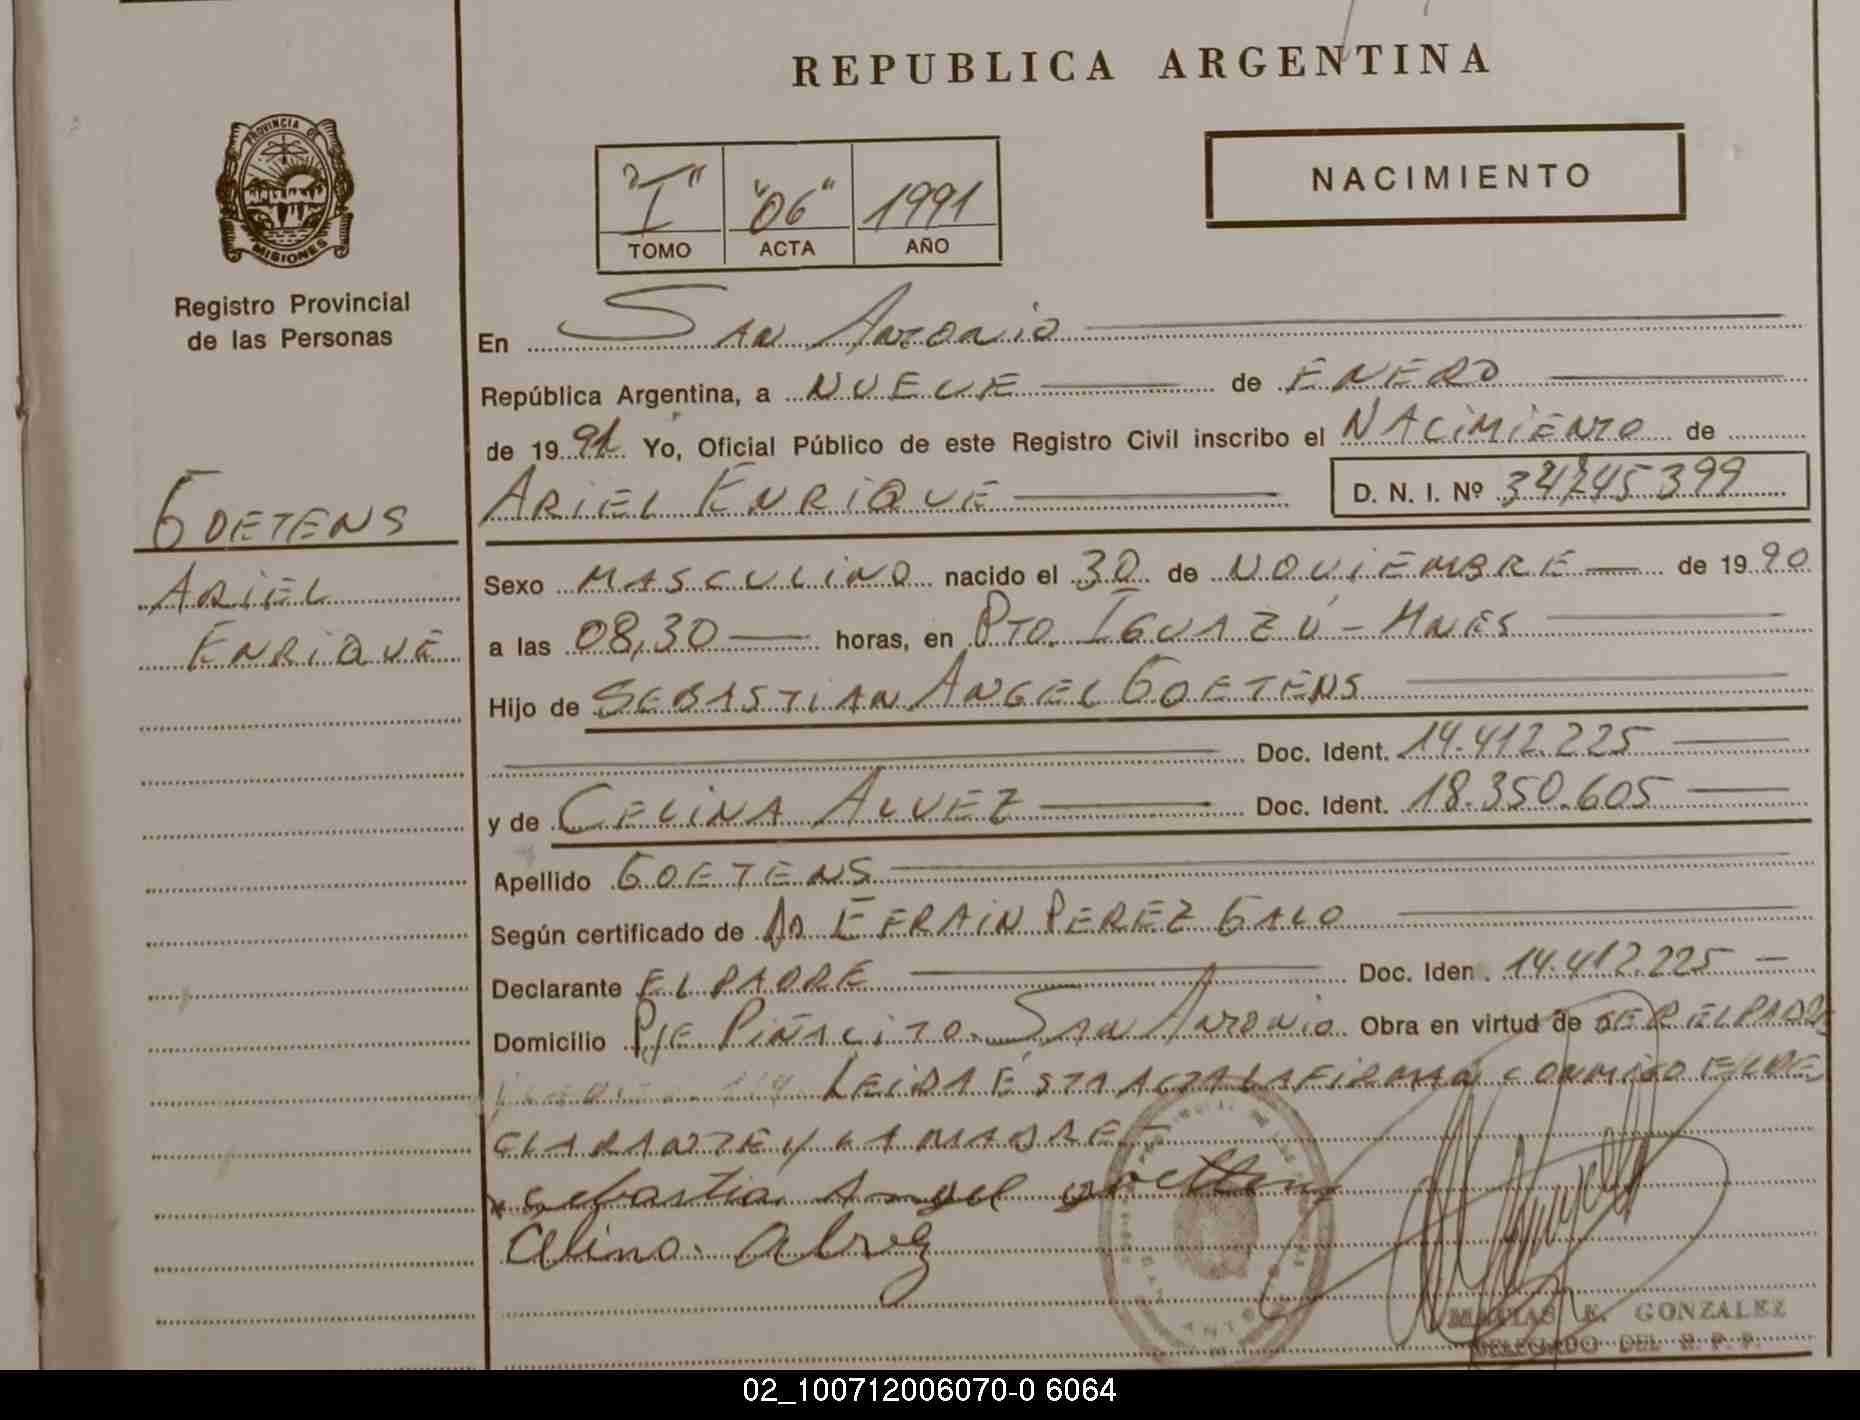 REPUBLICA ARGENTINA
PROVINCIA DE
MISIONES
Registro Provincial
de las Personas
"I" "06" 1991
TOMO ACTA AÑO
NACIMIENTO
En San Antonio
República Argentina, a NUEVE de ENERO
de 1991 Yo, Oficial Público de este Registro Civil inscribo el NACIMIENTO de
GOETENS
ARIEL ENRIQUE D. N. I. Nº
ARIEL
ENRIQUE
Sexo MASCULINO nacido el 30 de NOVIEMBRE de 1990
a las 08,30 horas, en Pto. IGUAZÚ - MNES
Hijo de SEBASTIAN ANGEL GOETENS
Doc. Ident. 14.412.225
y de CELINA ALVEZ Doc. Ident. 18.350.605
Apellido GOETENS
Según certificado de Dn EFRAIN PEREZ GALO
Declarante EL PADRE Doc. Iden. 14.412.225
Domicilio Pje PIÑALITO - SAN ANTONIO Obra en virtud de SER EL PADRE
LEIDA ÉSTA ACTA LA FIRMAN CONMIGO EL DE
CLARANTE Y LA MADRE.-
Sebastian Angel goettens
Celina Alvez
MATIAS E. GONZALEZ
DELEGADO DEL R. P. P.
02_100712006070-0 6064